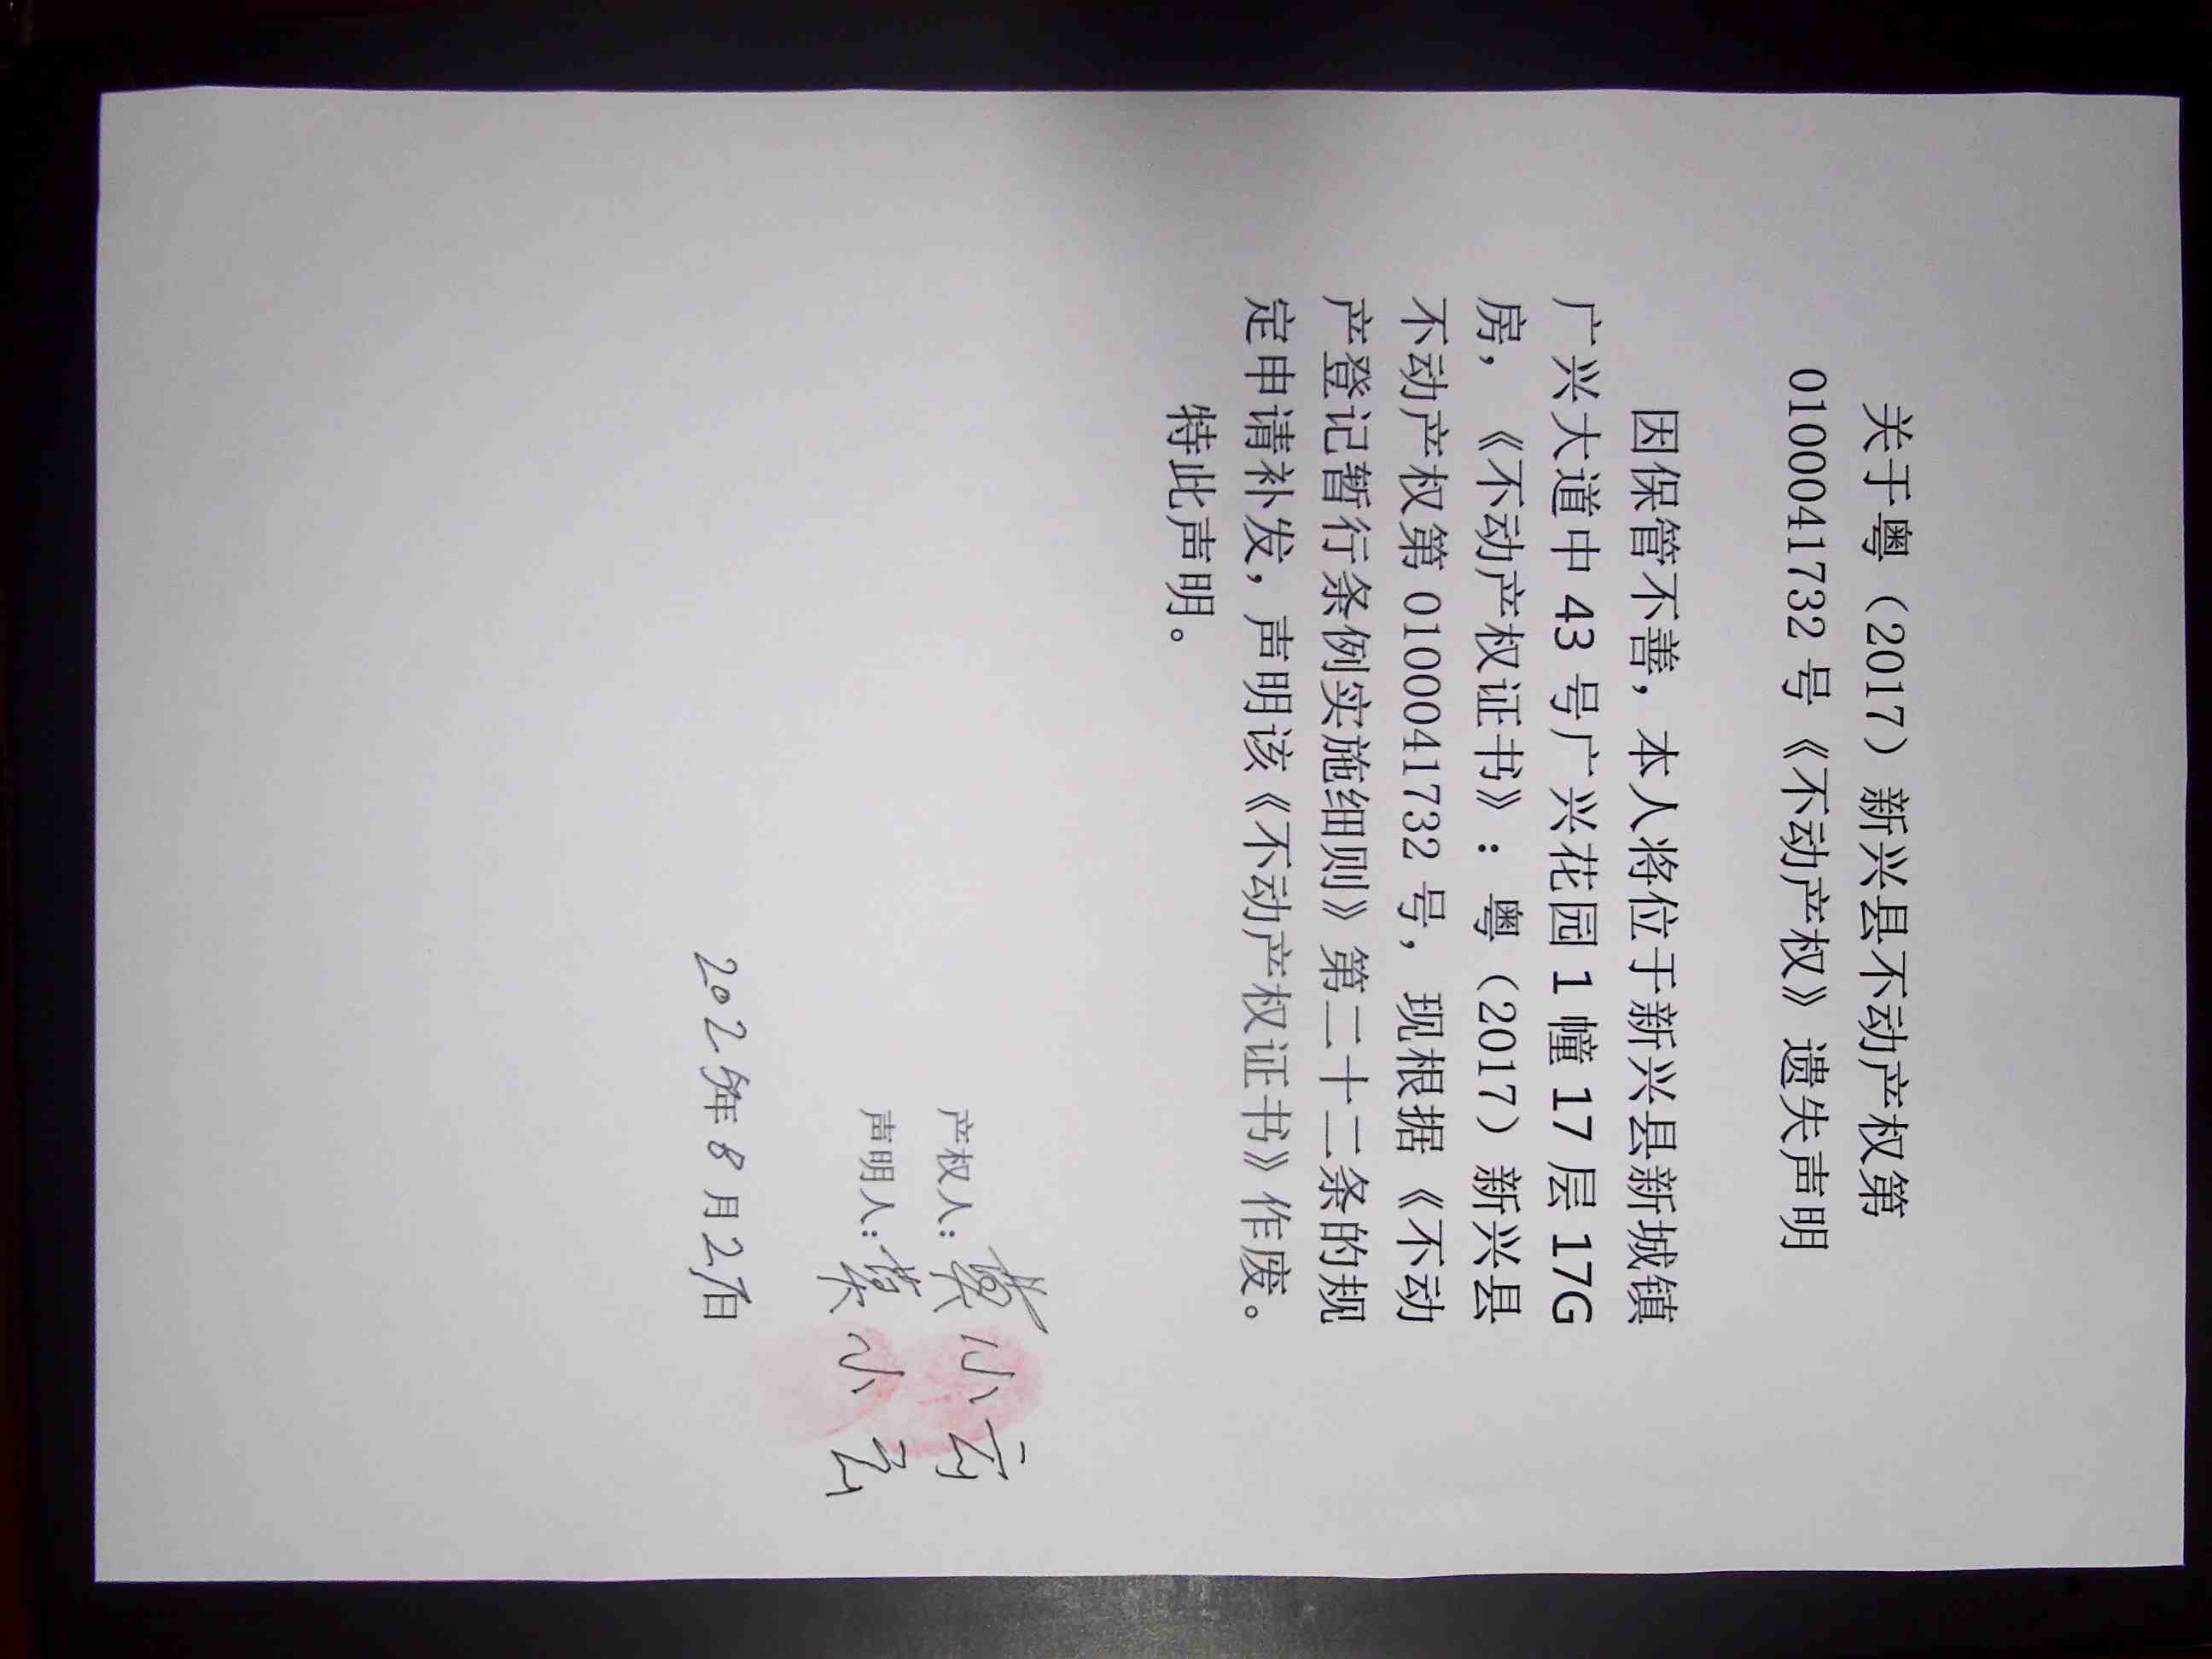 关于粤（2017）新兴县不动产权第
0100041732 号《不动产权》遗失声明
因保管不善，本人将位于新兴县新城镇
广兴大道中 43 号广兴花园 1 幢 17 层 17G
房，《不动产权证书》：粤（2017）新兴县
不动产权第 0100041732 号，现根据《不动
产登记暂行条例实施细则》第二十二条的规
定申请补发，声明该《不动产权证书》作废。
特此声明。
产权人：黄小云
声明人：黄小云
2025年8月21日